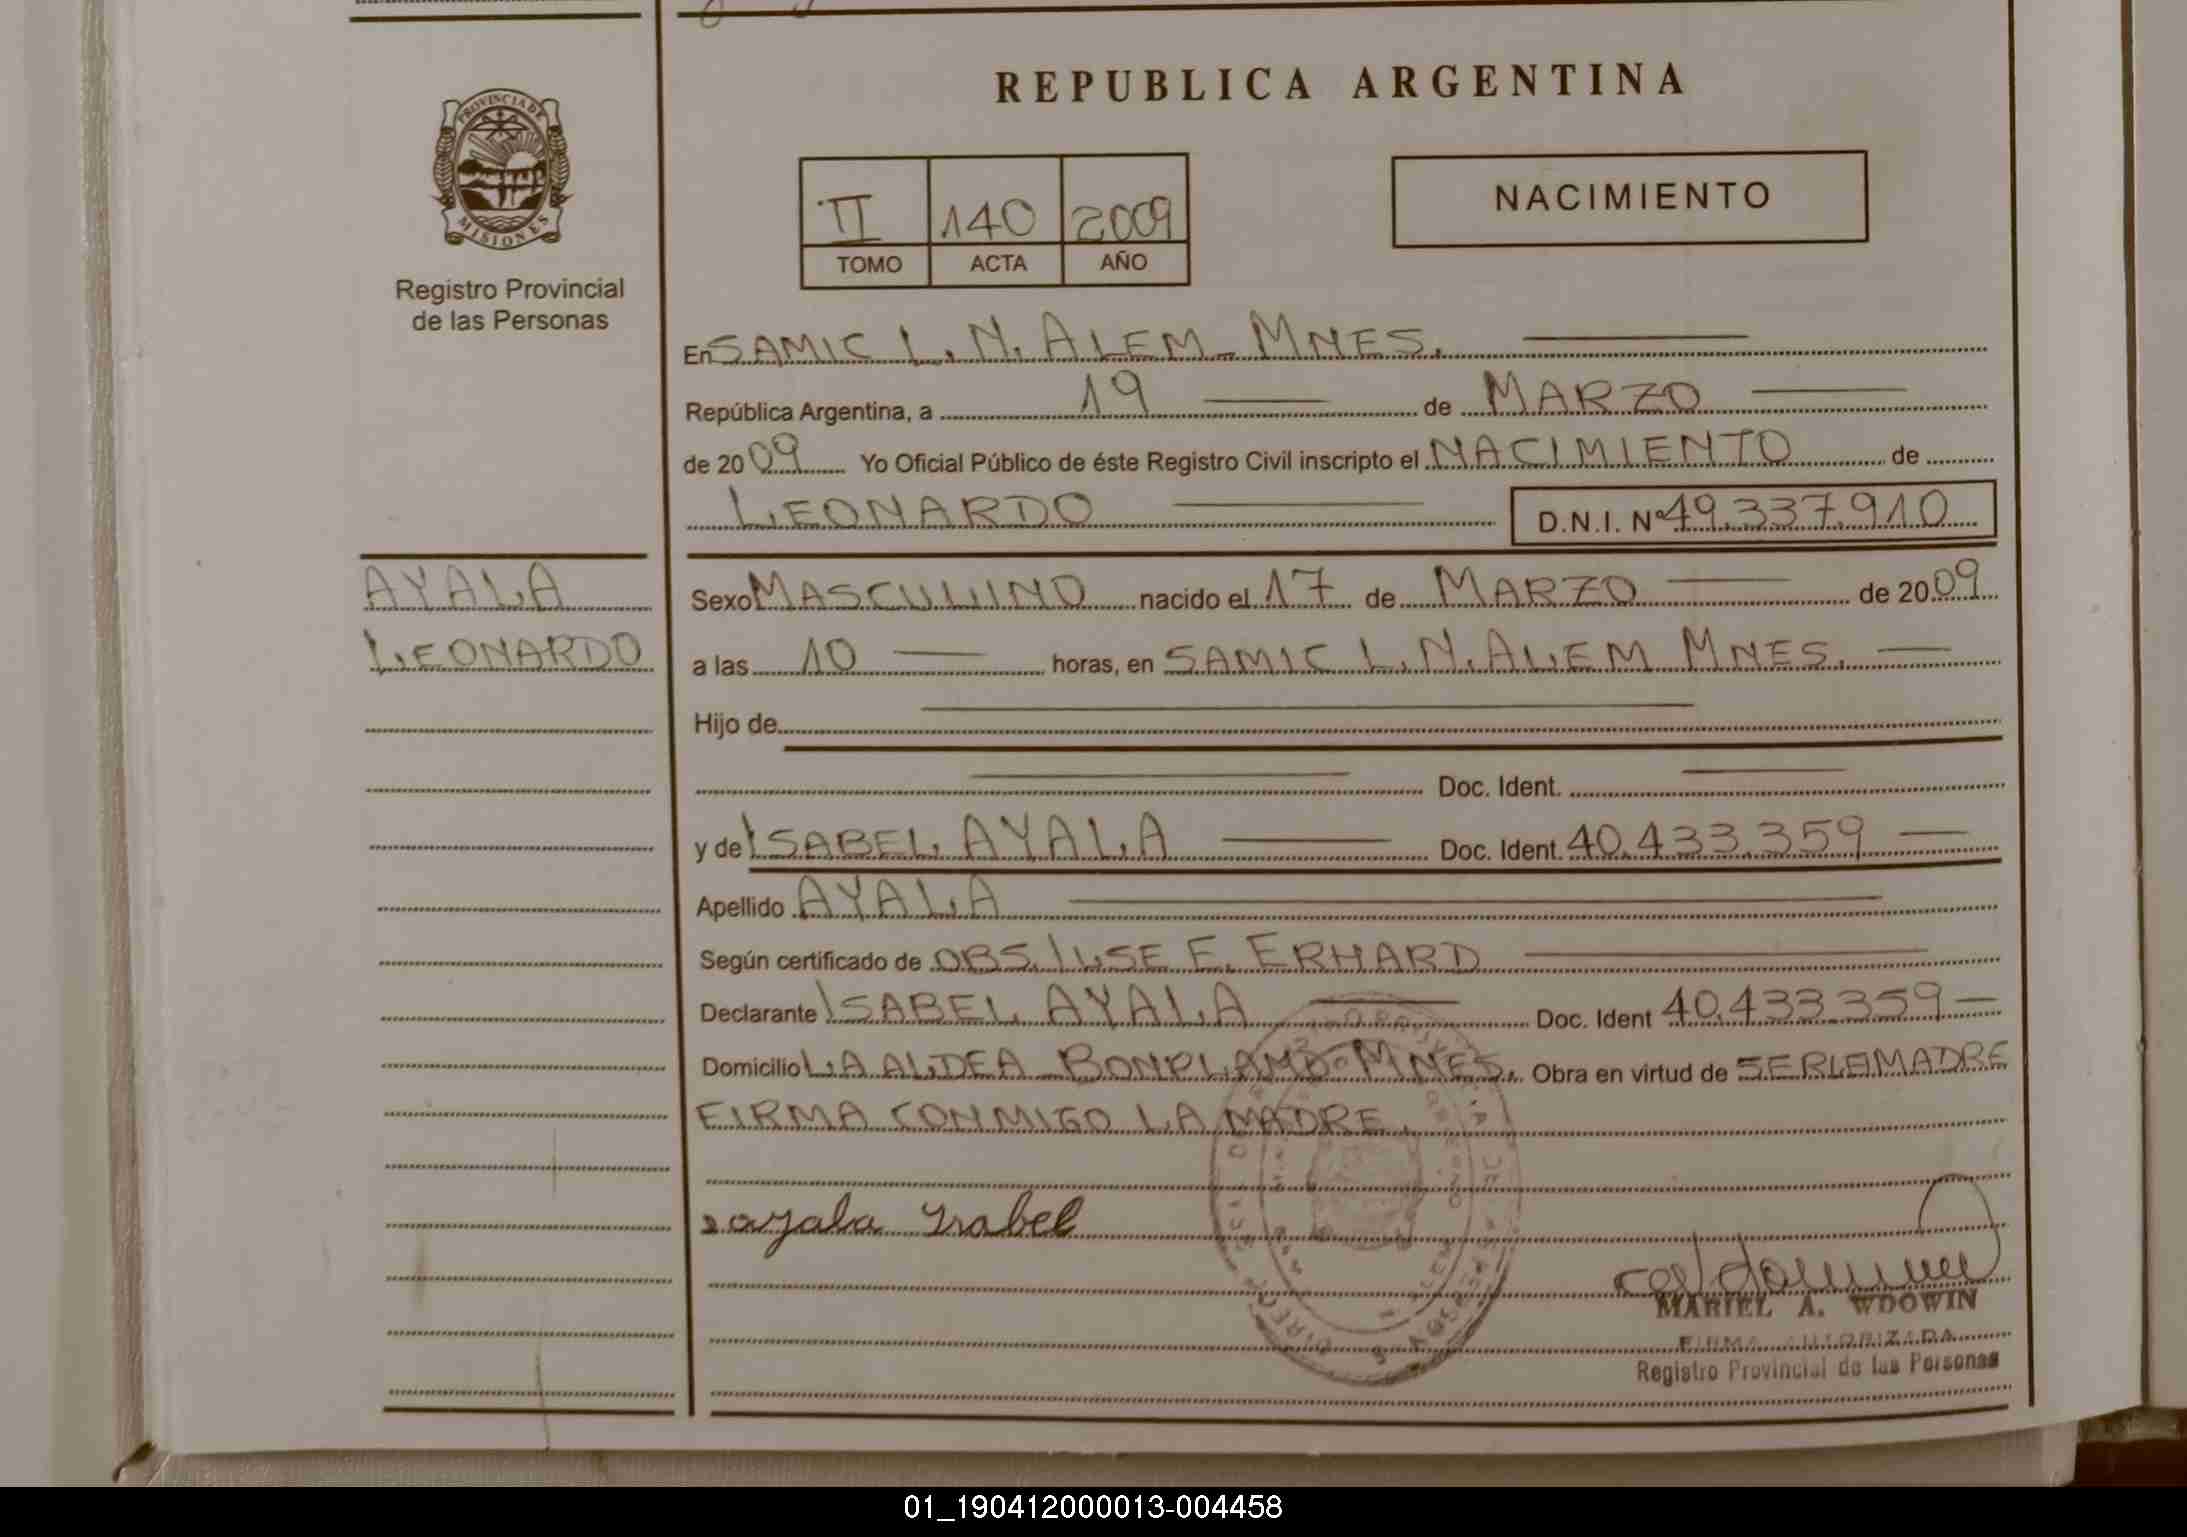 REPUBLICA ARGENTINA
PROVINCIA DE
MISIONES
Registro Provincial
de las Personas
II 140 2009
TOMO ACTA AÑO
NACIMIENTO
En SAMIC L.N. ALEM - MNES.
República Argentina, a 19 de MARZO
de 2009 Yo Oficial Público de éste Registro Civil inscripto el NACIMIENTO de
LEONARDO D.N.I. Nº 49.337.910
AYALA
LEONARDO
Sexo MASCULINO nacido el 17 de MARZO de 2009
a las 10 horas, en SAMIC L.N. ALEM MNES.
Hijo de
Doc. Ident.
y de ISABEL AYALA Doc. Ident. 40.433.359
Apellido AYALA
Según certificado de OBS. ILSE E. ERHARD
Declarante ISABEL AYALA Doc. Ident 40.433.359
Domicilio LA ALDEA - BONPLAND - MNES. Obra en virtud de SER LA MADRE
FIRMA CONMIGO LA MADRE.
ayala Ysabel
MARIEL A. WDOWIN
FIRMA AUTORIZADA
Registro Provincial de las Personas
01_190412000013-004458